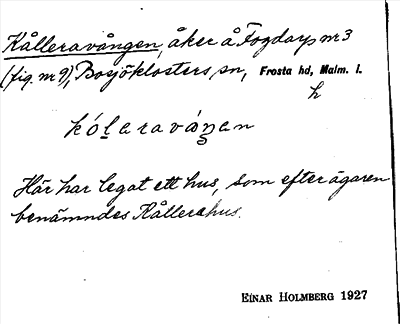 Kålleravången, åker å Fogdarp nr 3
(fig. nr 9), Bosjöklosters sn, Frosta hd, Malm. l.
h
kólaraváŋan
Här har legat ett hus, som efter ägaren
benämndes Kållerahus.
EINAR HOLMBERG 1927